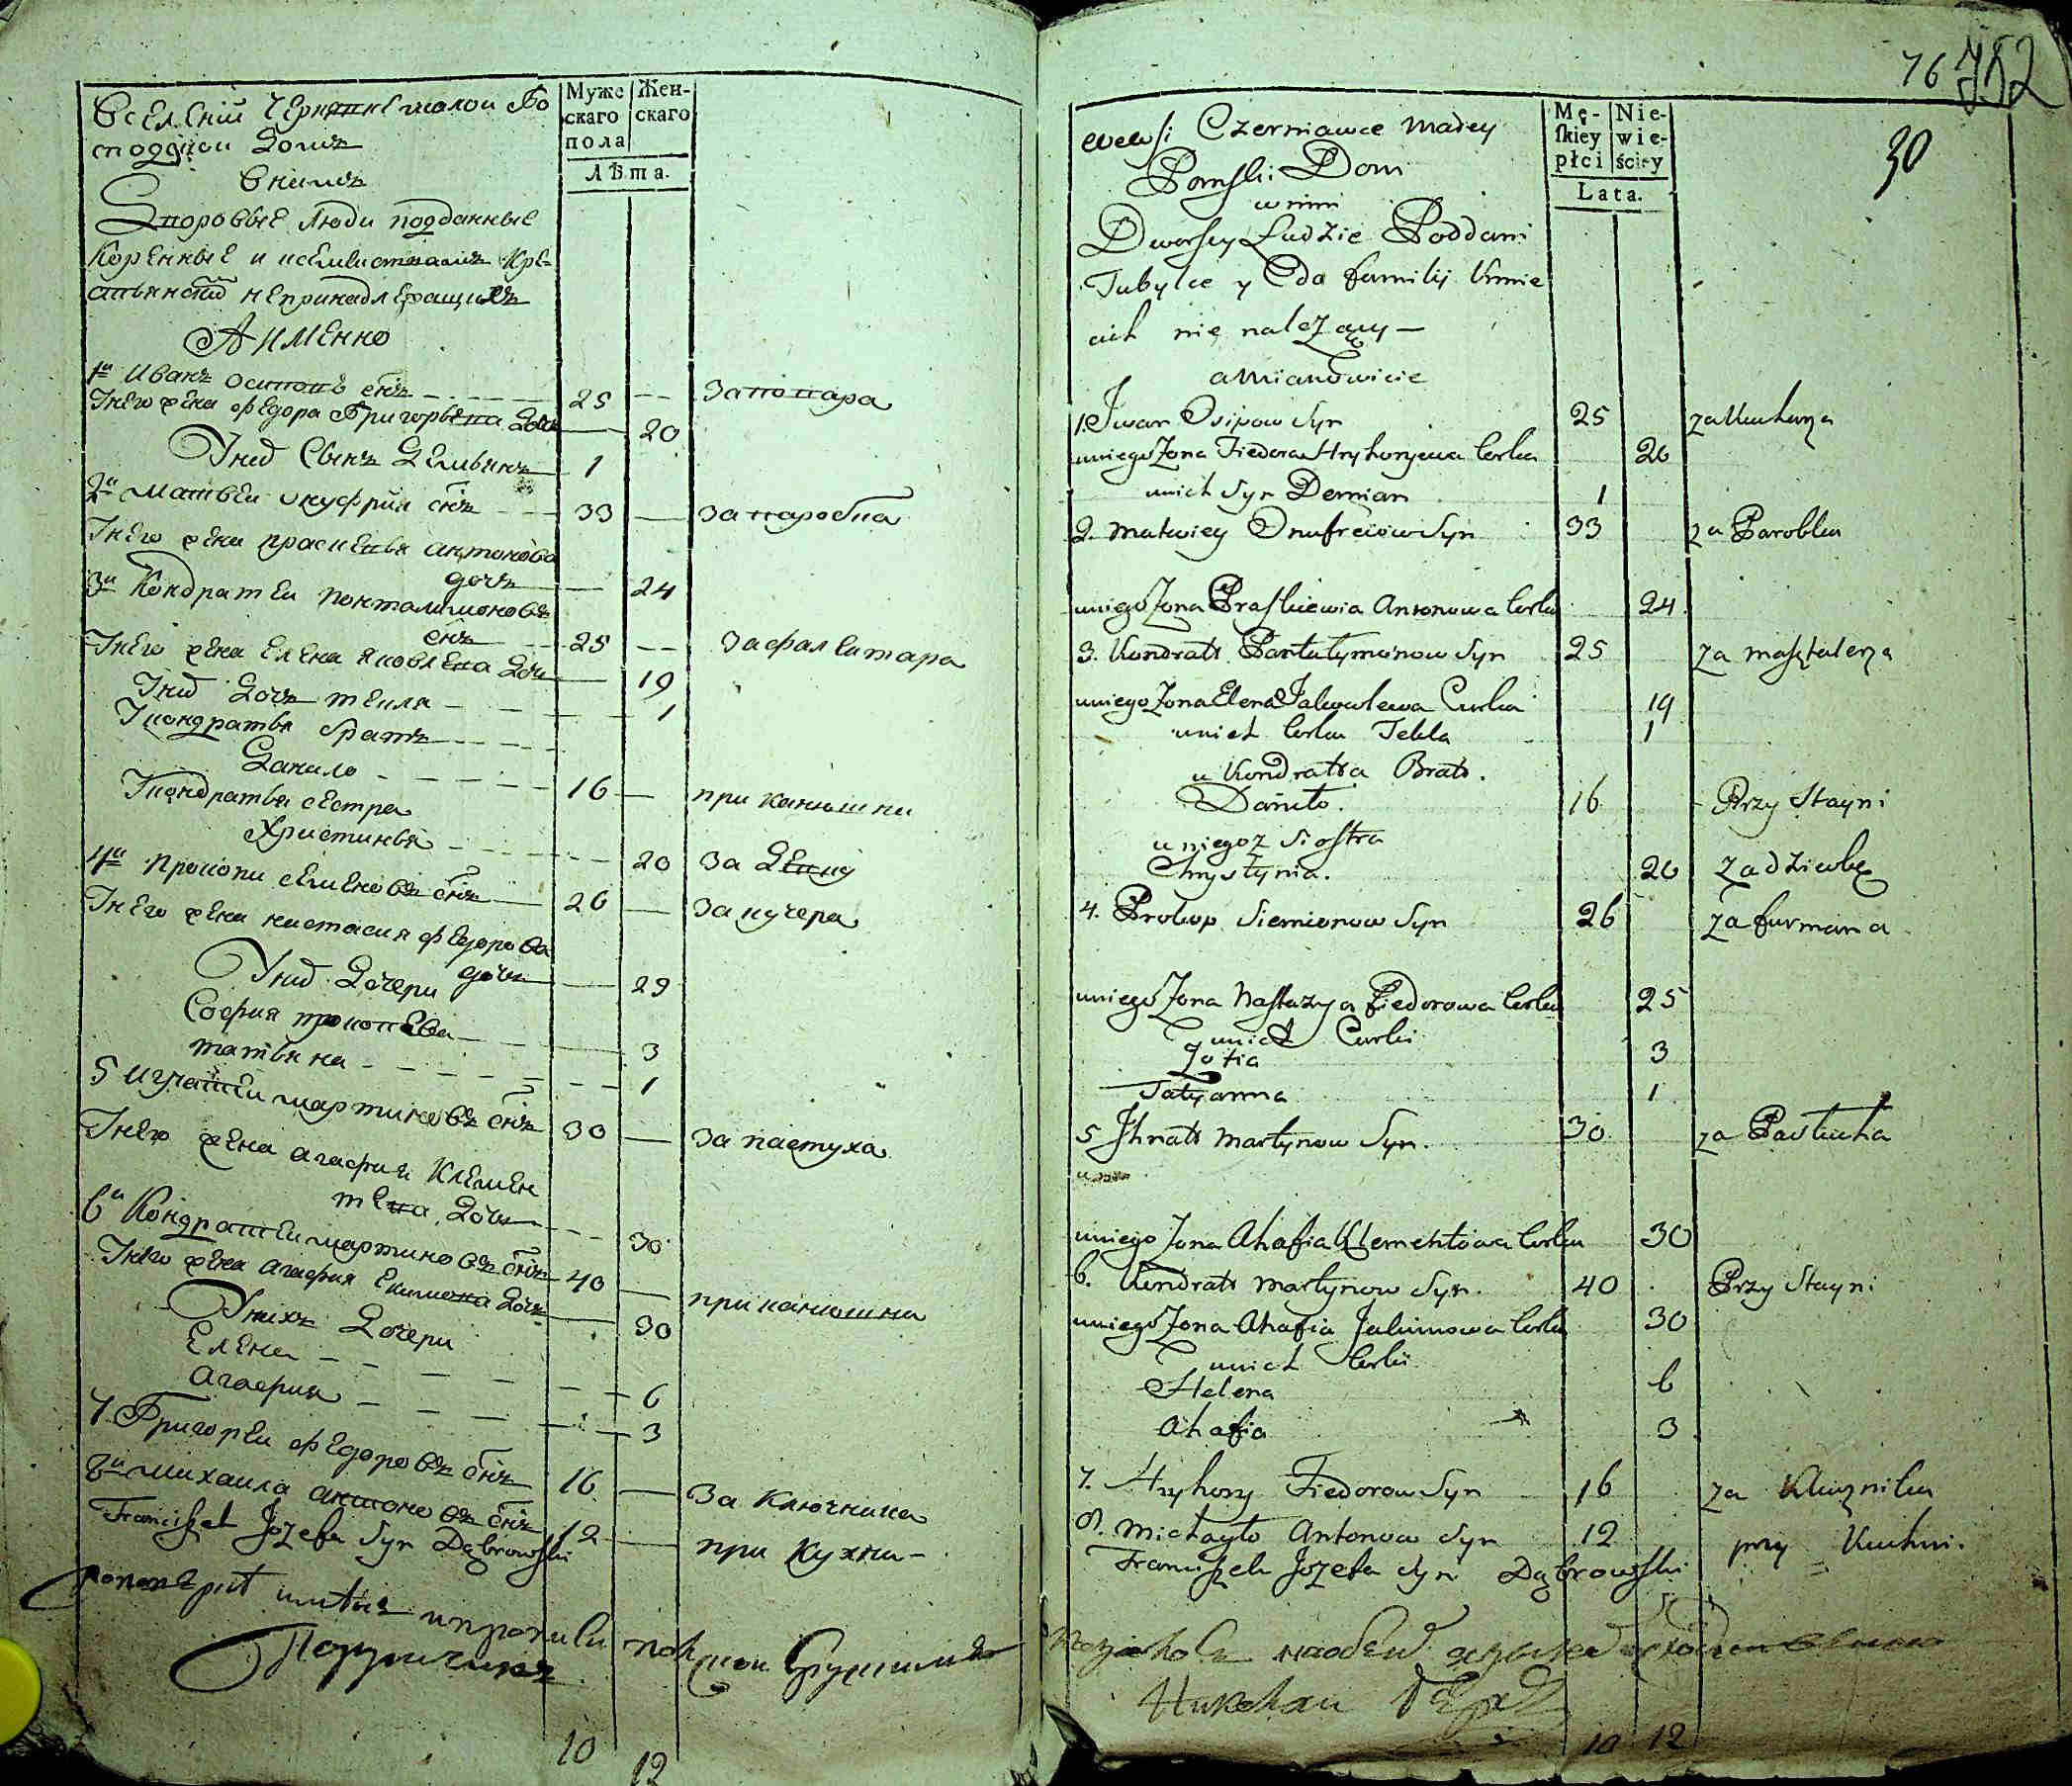 Вселении Чернявке малой Го
сподской домъ
Внемъ
Дворовые люди подданные
Коренные и
непринадлежащихъ
А именно
Муже
скаго
пола
Жен-
скаго
Лѣта.
1й Иванъ Осиповъ снъ 25 За повара
Унего жена Федора Григорьева дочь 20
Унихъ Сынъ Демьянъ 1
2й Матвеи Онуфрия снъ 33 За паробка
Унего жена Прасковья Антонова
дочь 24
3й Кондратеи Понталимоновъ
снъ 25 За фалеитара
Унего жена Елена Яковлева дочь 19
Унихъ дочь Текля 1
Укондратья братъ
Данило 16 при канюшни
Укондратья сестра
Христинья 20 За девку
4й Прокопи Семеновъ снъ 26 За кучера
Унего жена Настасия Федорова
дочь 29
Унихъ дочери
София Прокопева 3
Татьяна 1
5 Игнатеи Мартиновъ снъ 30 За пастуха
Унего жена Агафия Клемен
тева дочь 30
6й Кондратеи Мартиновъ снъ 40 при канюшна
Унего жена Агафия Екимова дочь 30
Унихъ дочери
Елена 6
Агафия 3
7 Григореи Федоровъ снъ 16 За ключника
8й Михаила Антоновъ снъ 12 при кухни
Franciszek Jozefa Syn Dąbrowski
Поручикъ
10 12
76 752
30
wewsi Czerniawce Małey
Pański: Dom
w nim
Dworscy Ludzie Poddani
Tubylce y do familij Kmie
cich nie należący
a mianowicie
Mę-
skiey
płci
Nie-
wie-
ściey
Lata.
1. Iwan Osipow Syn 25 za Kucharza
uniego Zona Fiedora Hryhoryewa Corka 20
unich Syn Demian 1
2. Matwiey Onufreiow Syn 33 za Parobka
uniego Zona Praskiewia Antonowa Corka 24
3. Kondrat Pantałymonow Syn 25 za masztalerza
uniego Zona Elena Jakowlewa Curka 19
unich Corka Tekla 1
u Kondrata Brat.
Daniło. 16 Przy Stayni
u niegoz Siostra
Chrystynia. 20 za dziewkę
4. Prokop Siemionow Syn 26 za furmana
uniego Zona Nastazya Fiedorowa Corka 25
unich Curki
Zofia 3
Tatyanna 1
5 Ihnat Martynow Syn. 30 za Pastucha
uniego Zona Ahafia Klementowa Corka 30
6. Kondrat Martynow Syn. 40 Przy Stayni
uniego Zona Ahafia Jakimowa Corka 30
unich Corki
Helena 6
Ahafia 3
7. Hryhory Fiedorow Syn 16 za Klucznika
8. Michayło Antonow Syn 12 przy Kuchni.
Franciszek Jozefa Syn Dąbrowski
Николаи
10 12